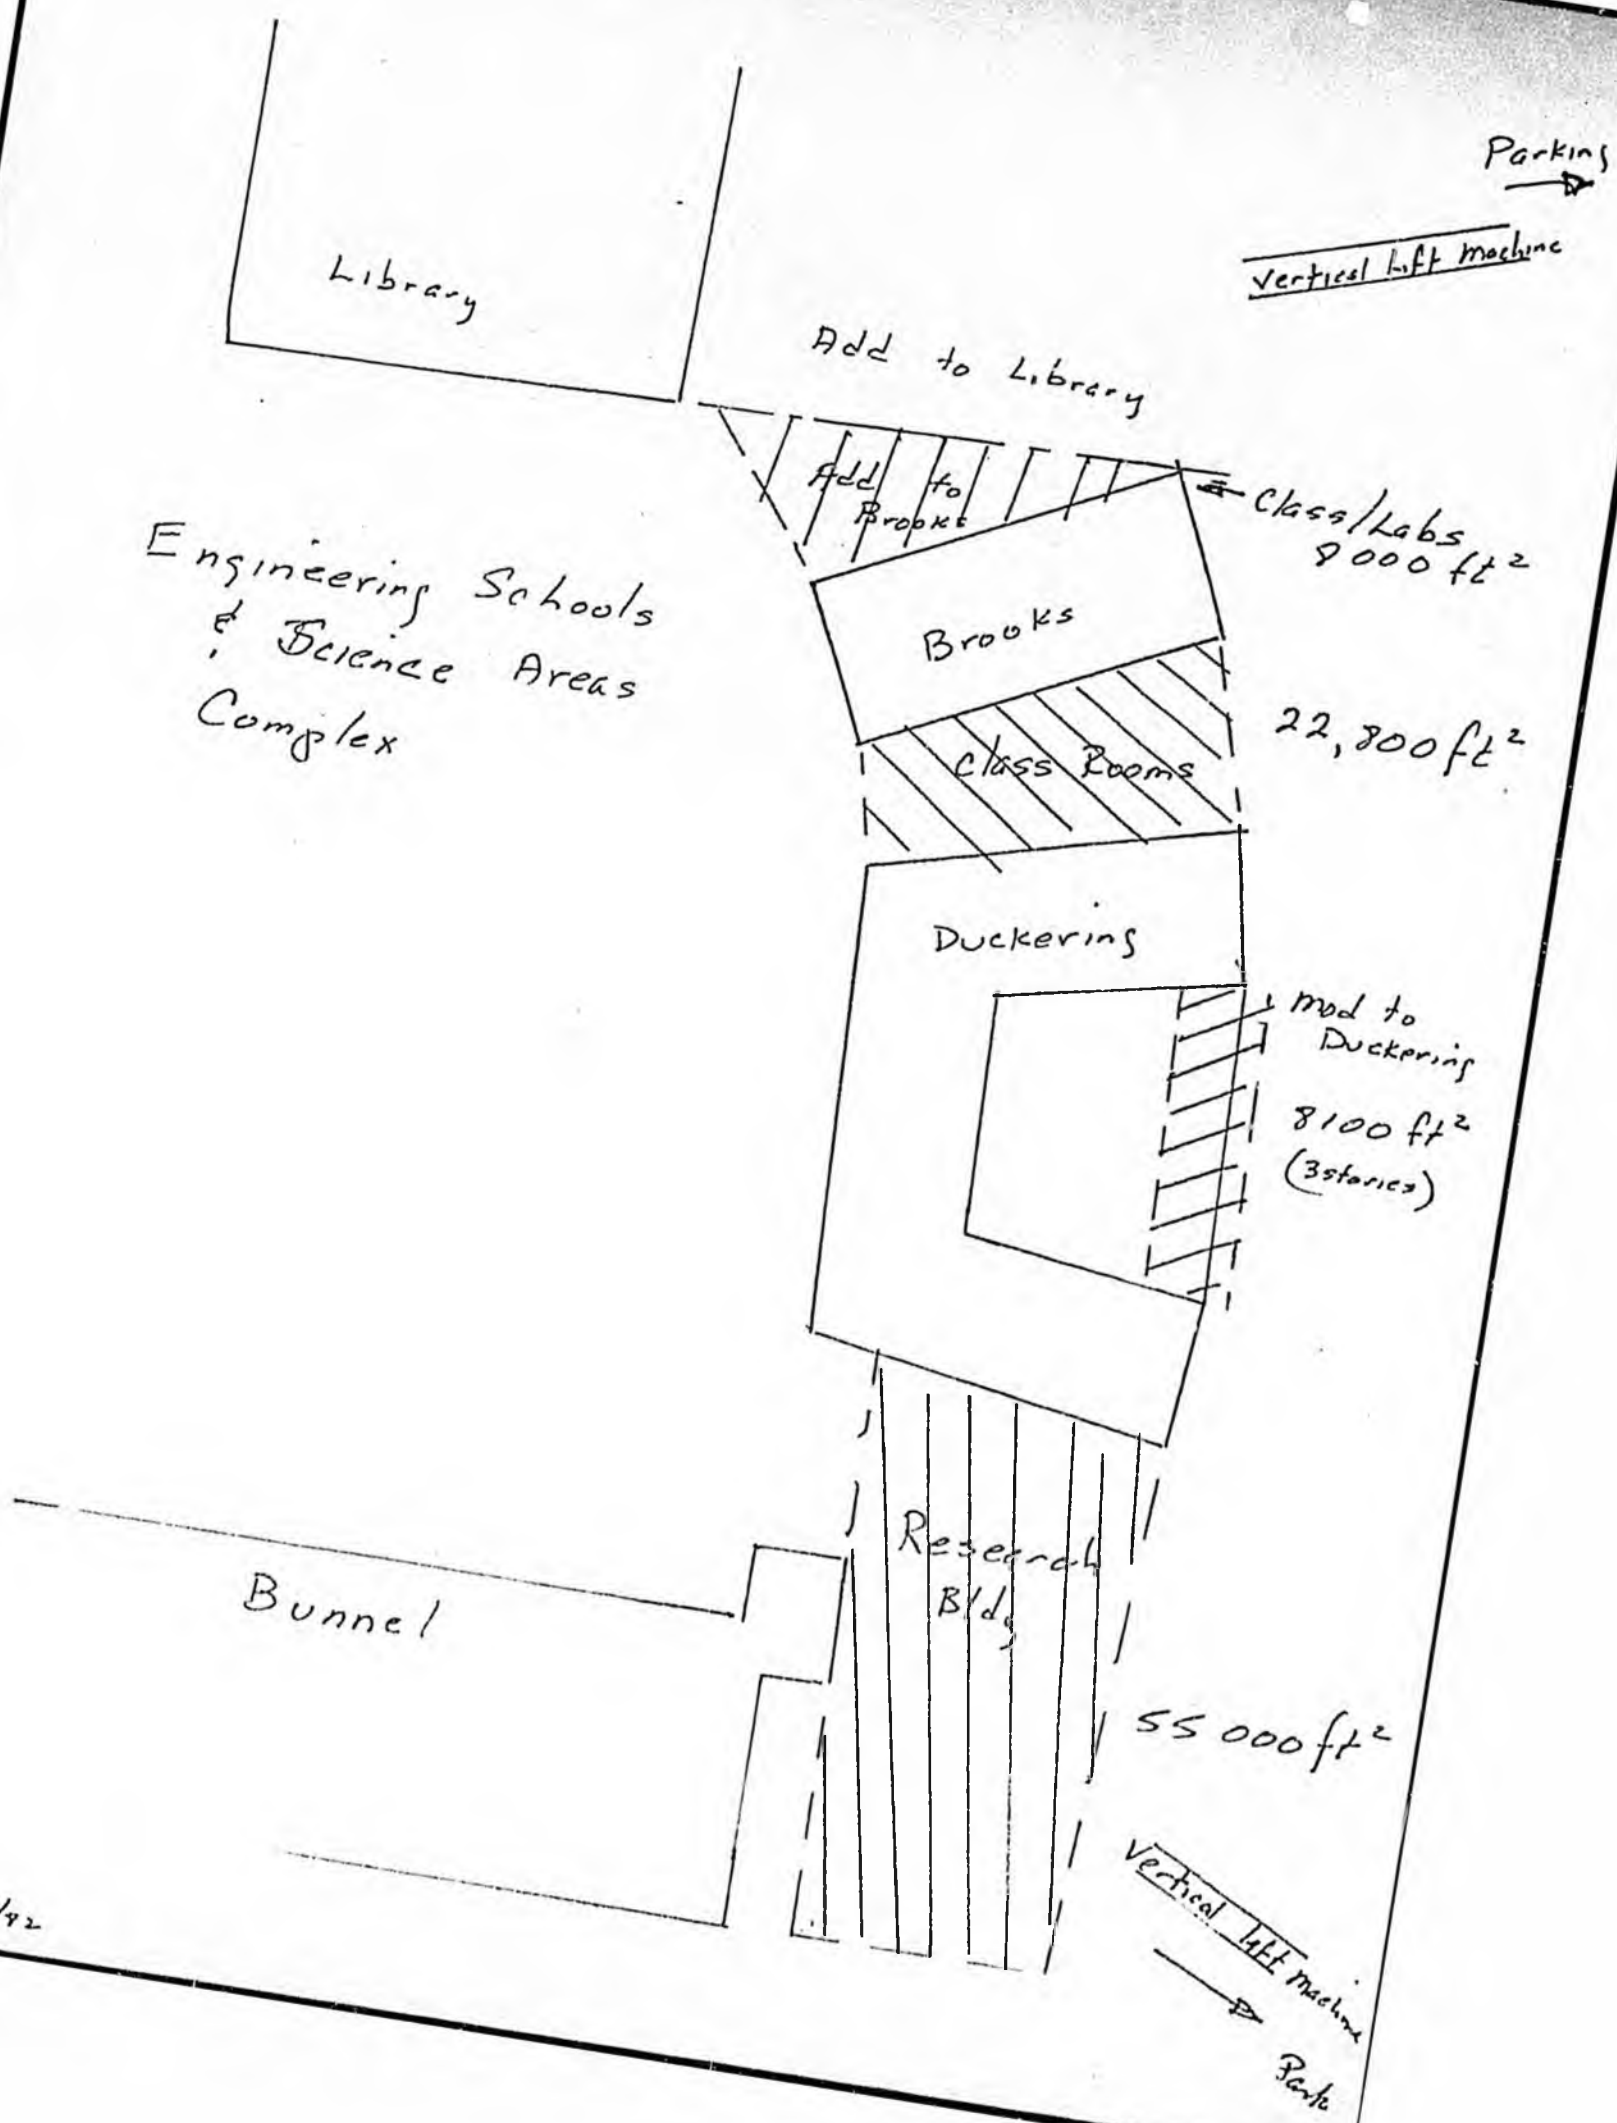 Parking
Vertical Lift Machine
Library
Add to Library
Add to
Brooks
Class/Labs
8000 ft²
Engineering Schools
& Science Areas
Complex
Brooks
22,800 ft²
Class Rooms
Duckering
Mod to
Duckering
8100 ft²
(3 stories)
Research
Bldg
Bunnel
55 000 ft²
Vertical lift Machine
Park
/82